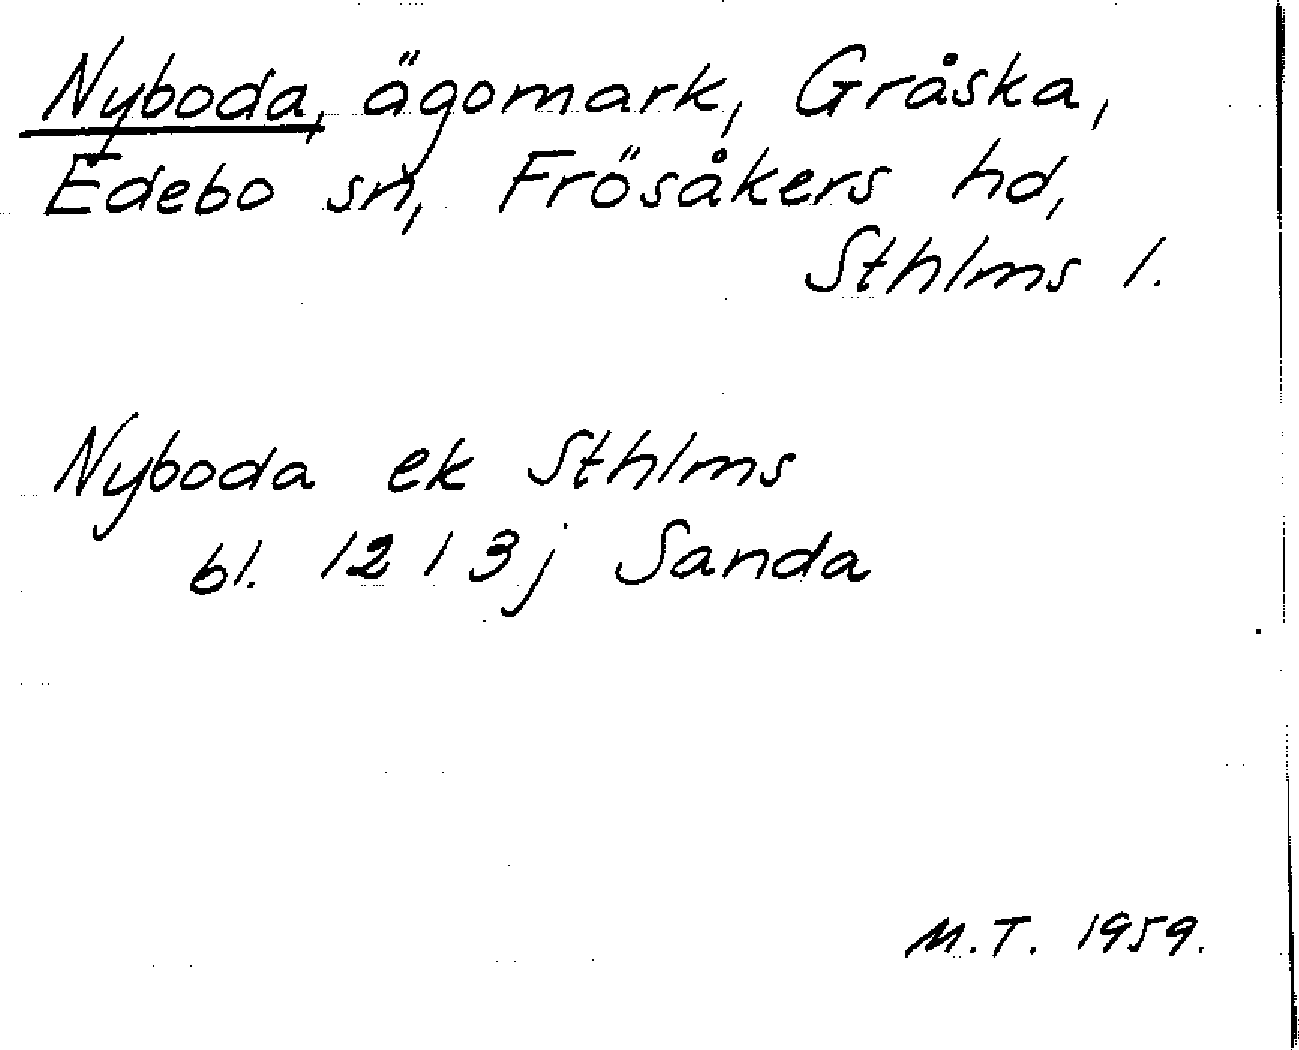 Nyboda, ägomark, Gråska,
Edebo sn, Frösåkers hd,
Sthlms l.
Nyboda ek Sthlms
bl. 12 I 3 j Sanda
M.T. 1959.